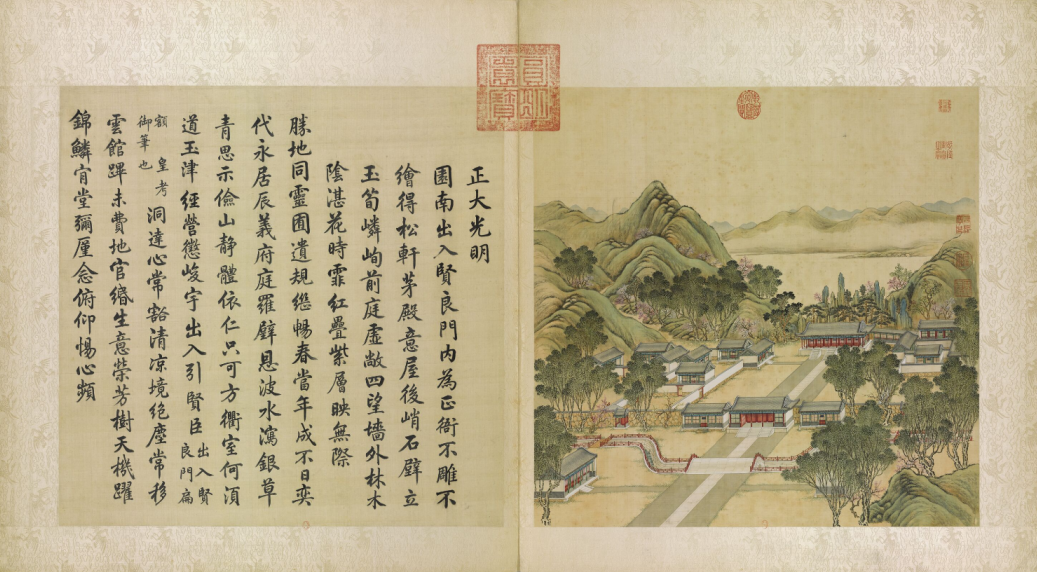 正大光明
園南出入賢良門內為正衙不雕不
繪得松軒茅殿意屋後峭石壁立
玉筍嶙峋前庭虛敞四望墻外林木
陰湛花時霏紅疊紫層映無際
勝地同靈囿遺規繼暢春當年成不日奕
代永居辰義府庭羅壁恩波水瀉銀草
青思示儉山靜體依仁只可方衢室何須
道玉津經營懲峻宇出入引賢臣出入賢
良門扁
額皇考
御筆也
洞達心常豁清涼境絕塵常移
雲館蹕未費地官緡生意榮芳樹天機躍
錦鱗肯堂彌厪念俯仰惕心頻